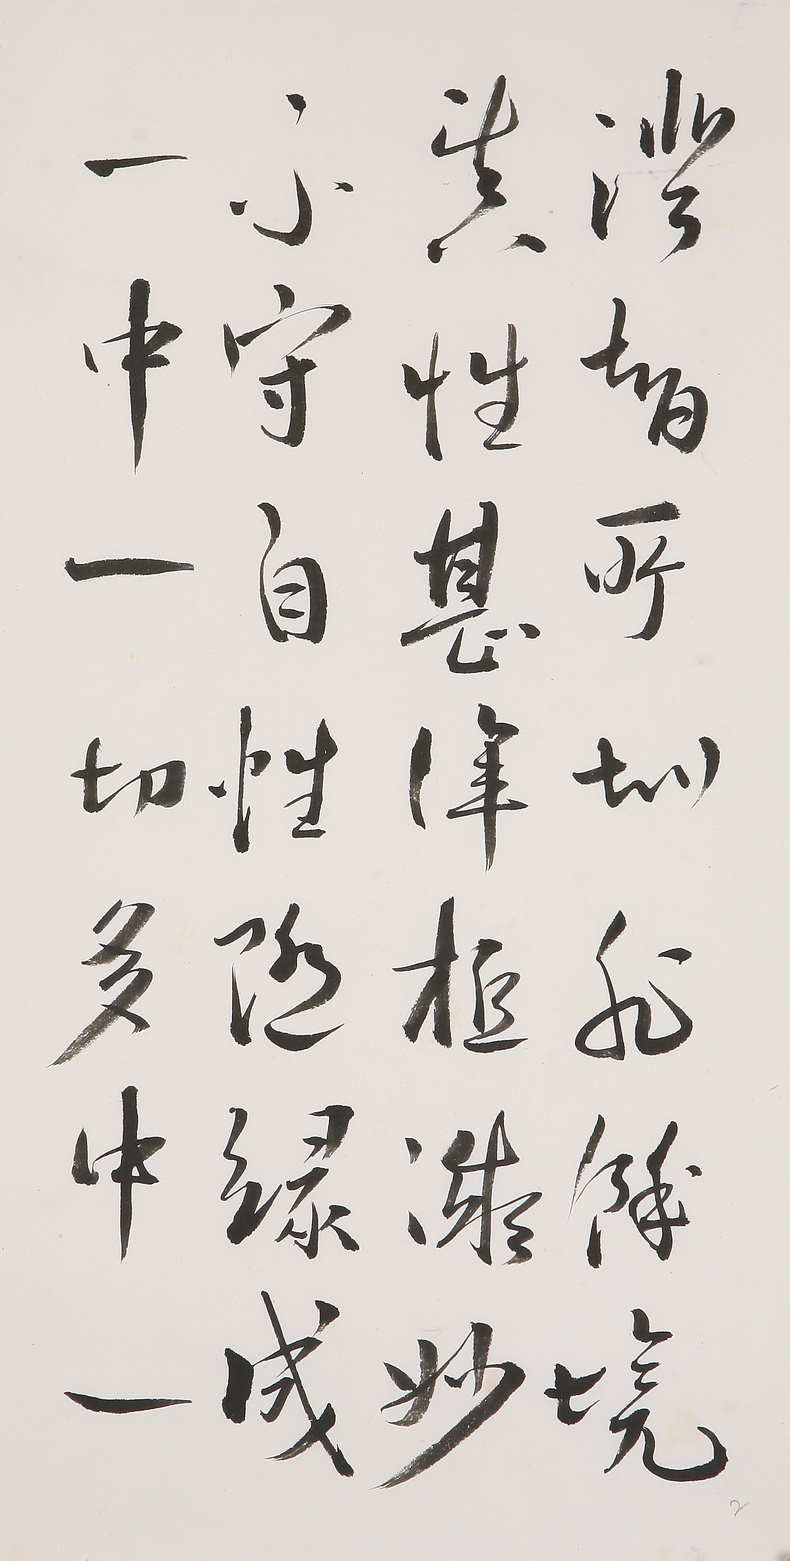 證智所知非餘境
真性甚深極微妙
不守自性隨緣成
一中一切多中一
2